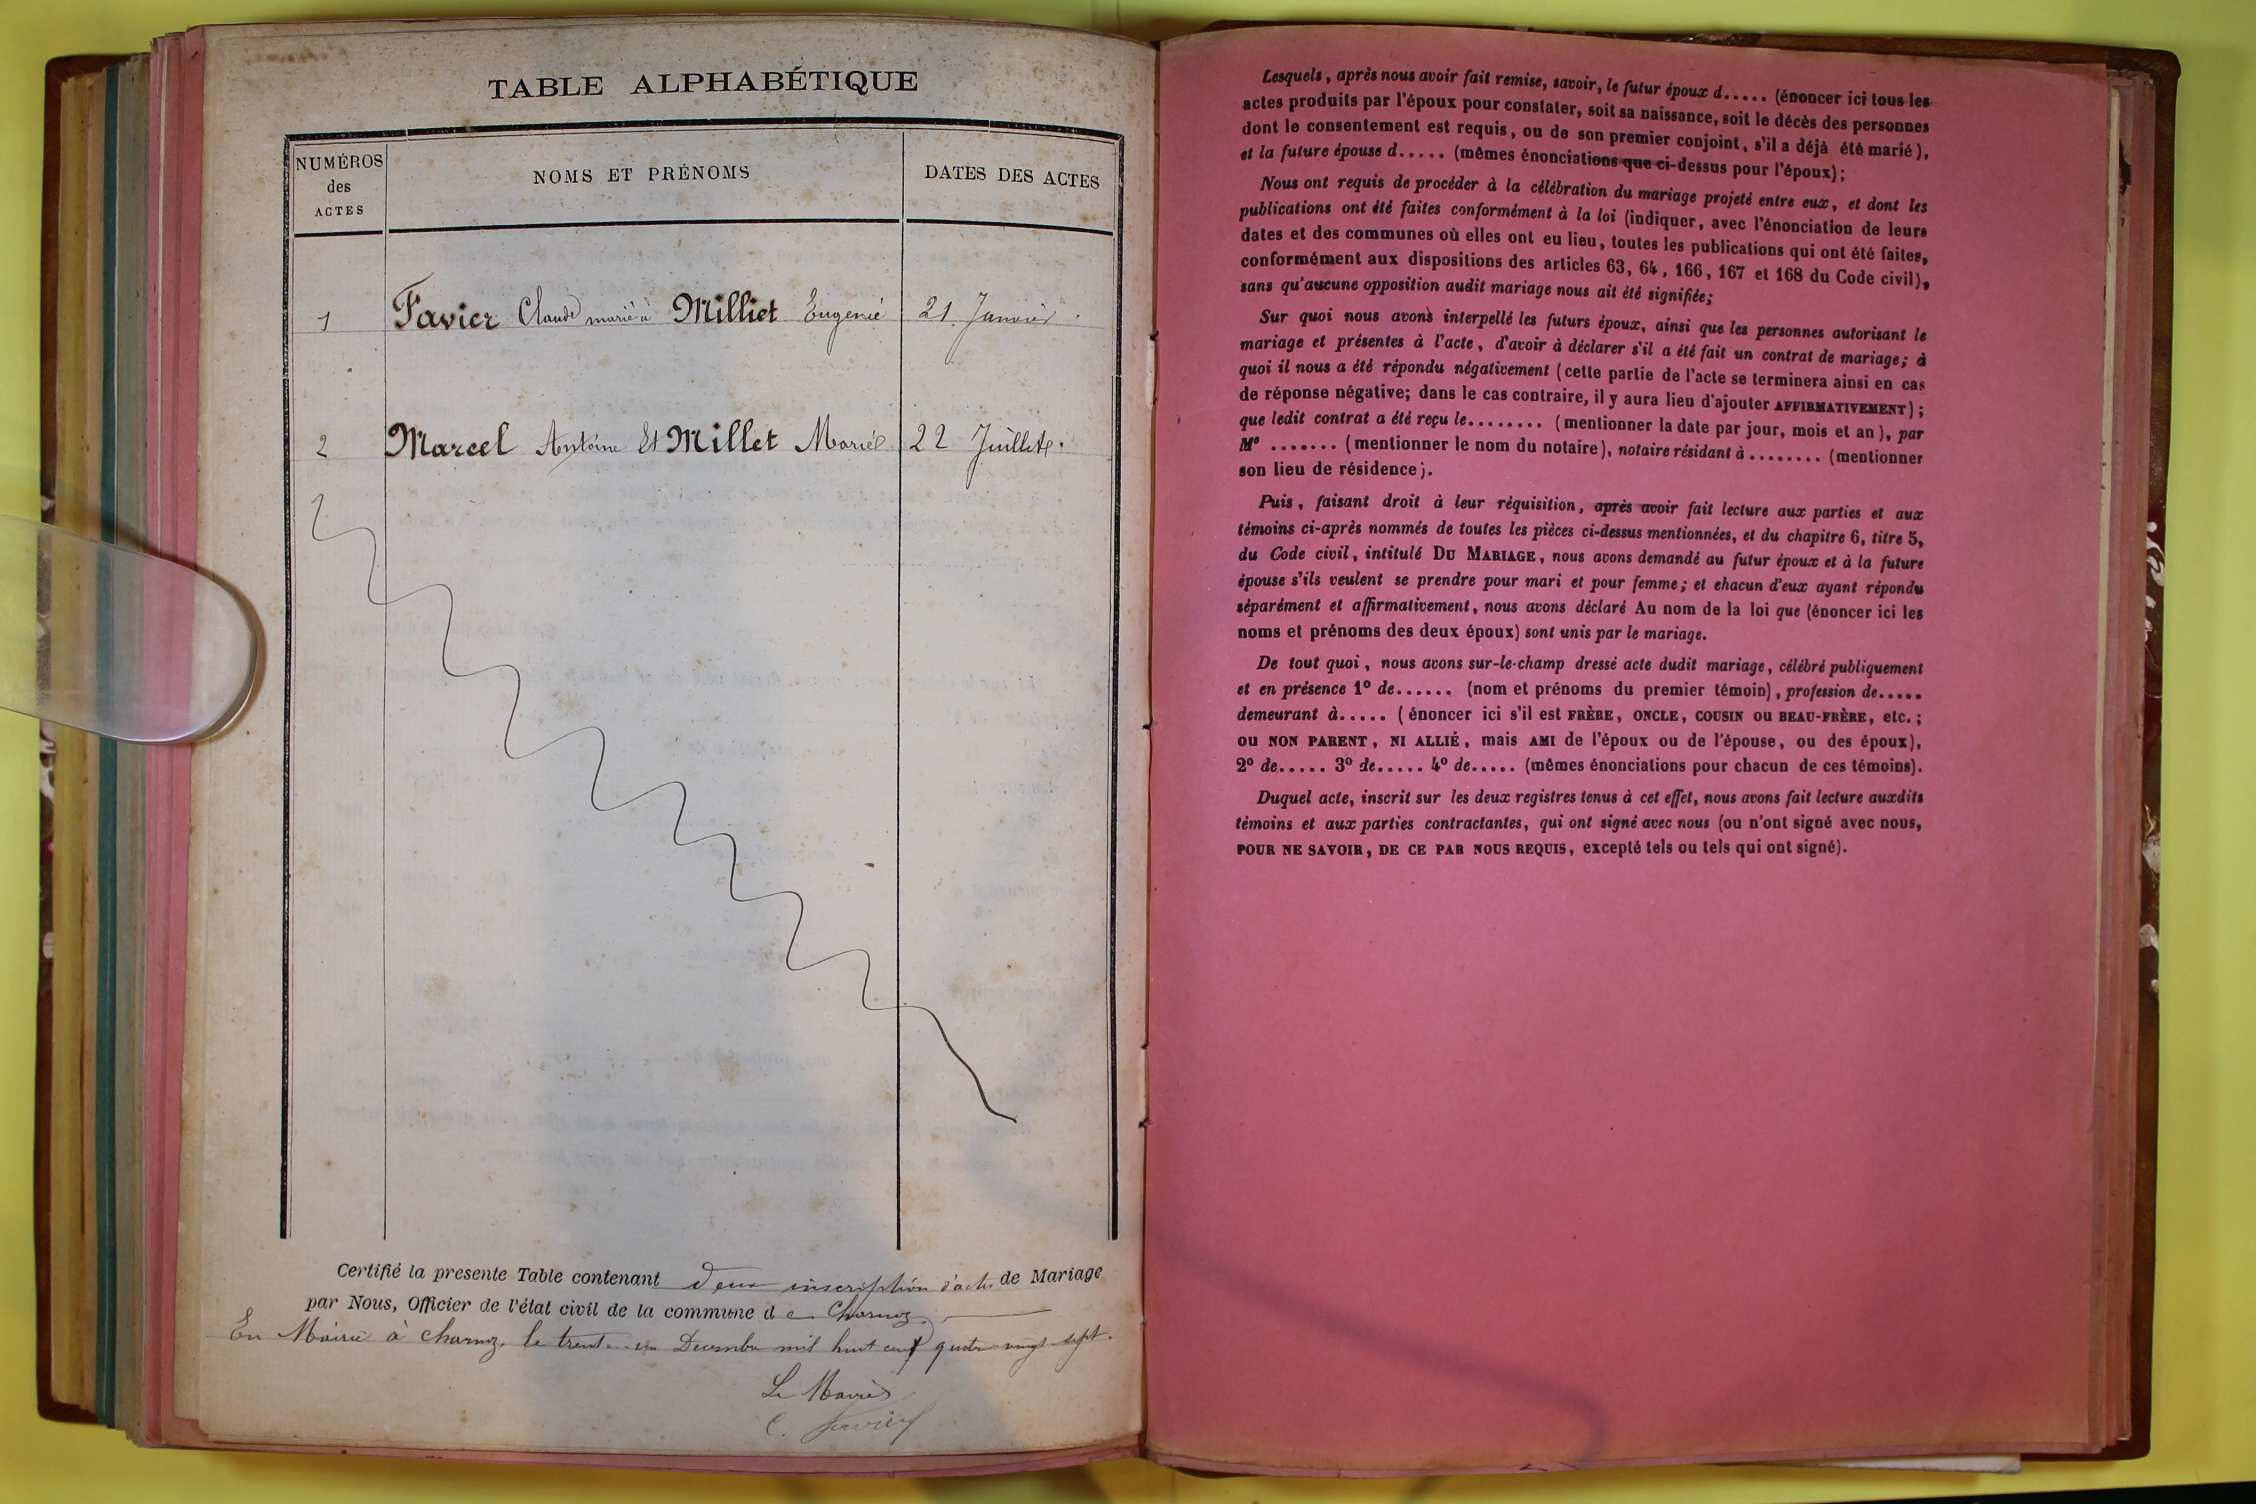 TABLE ALPHABÉTIQUE
NUMÉROS
des
ACTES
NOMS ET PRÉNOMS
DATES DES ACTES
1 Favier Claude marié à Milliet Eugenie 21 Janvier.
2 Marcel Antoine Et Millet Marie 22 Juillet.
Certifié la presente Table contenant deux inscription d'actes de Mariage
par Nous, Officier de l'état civil de la commune de Charnoz
En Mairie à charnoz, le trente-un Decembre mil huit cent quatre vingt-sept.
Le Maire
C. Favier
Lesquels, après nous avoir fait remise, savoir, le futur époux d..... (énoncer ici tous les
actes produits par l'époux pour constater, soit sa naissance, soit le décès des personnes
dont le consentement est requis, ou de son premier conjoint, s'il a déjà été marié),
et la future épouse d..... (mêmes énonciations que ci-dessus pour l'époux);
Nous ont requis de procéder à la célébration du mariage projeté entre eux, et dont les
publications ont été faites conformément à la loi (indiquer, avec l'énonciation de leurs
dates et des communes où elles ont eu lieu, toutes les publications qui ont été faites,
conformément aux dispositions des articles 63, 64, 166, 167 et 168 du Code civil),
sans qu'aucune opposition audit mariage nous ait été signifiée;
Sur quoi nous avons interpellé les futurs époux, ainsi que les personnes autorisant le
mariage et présentes à l'acte, d'avoir à déclarer s'il a été fait un contrat de mariage; à
quoi il nous a été répondu négativement (cette partie de l'acte se terminera ainsi en cas
de réponse négative; dans le cas contraire, il y aura lieu d'ajouter AFFIRMATIVEMENT);
que ledit contrat a été reçu le........ (mentionner la date par jour, mois et an), par
Me ....... (mentionner le nom du notaire), notaire résidant à ........ (mentionner
son lieu de résidence).
Puis, faisant droit à leur réquisition, après avoir fait lecture aux parties et aux
témoins ci-après nommés de toutes les pièces ci-dessus mentionnées, et du chapitre 6, titre 5,
du Code civil, intitulé DU MARIAGE, nous avons demandé au futur époux et à la future
épouse s'ils veulent se prendre pour mari et pour femme; et chacun d'eux ayant répondu
séparément et affirmativement, nous avons déclaré Au nom de la loi que (énoncer ici les
noms et prénoms des deux époux) sont unis par le mariage.
De tout quoi, nous avons sur-le-champ dressé acte dudit mariage, célébré publiquement
et en présence 1o de...... (nom et prénoms du premier témoin), profession de.....
demeurant à..... (énoncer ici s'il est FRÈRE, ONCLE, COUSIN ou BEAU-FRÈRE, etc.;
ou NON PARENT, NI ALLIÉ, mais AMI de l'époux ou de l'épouse, ou des époux),
2o de..... 3o de..... 4o de..... (mêmes énonciations pour chacun de ces témoins).
Duquel acte, inscrit sur les deux registres tenus à cet effet, nous avons fait lecture auxdits
témoins et aux parties contractantes, qui ont signé avec nous (ou n'ont signé avec nous,
POUR NE SAVOIR, DE CE PAR NOUS REQUIS, excepté tels ou tels qui ont signé).